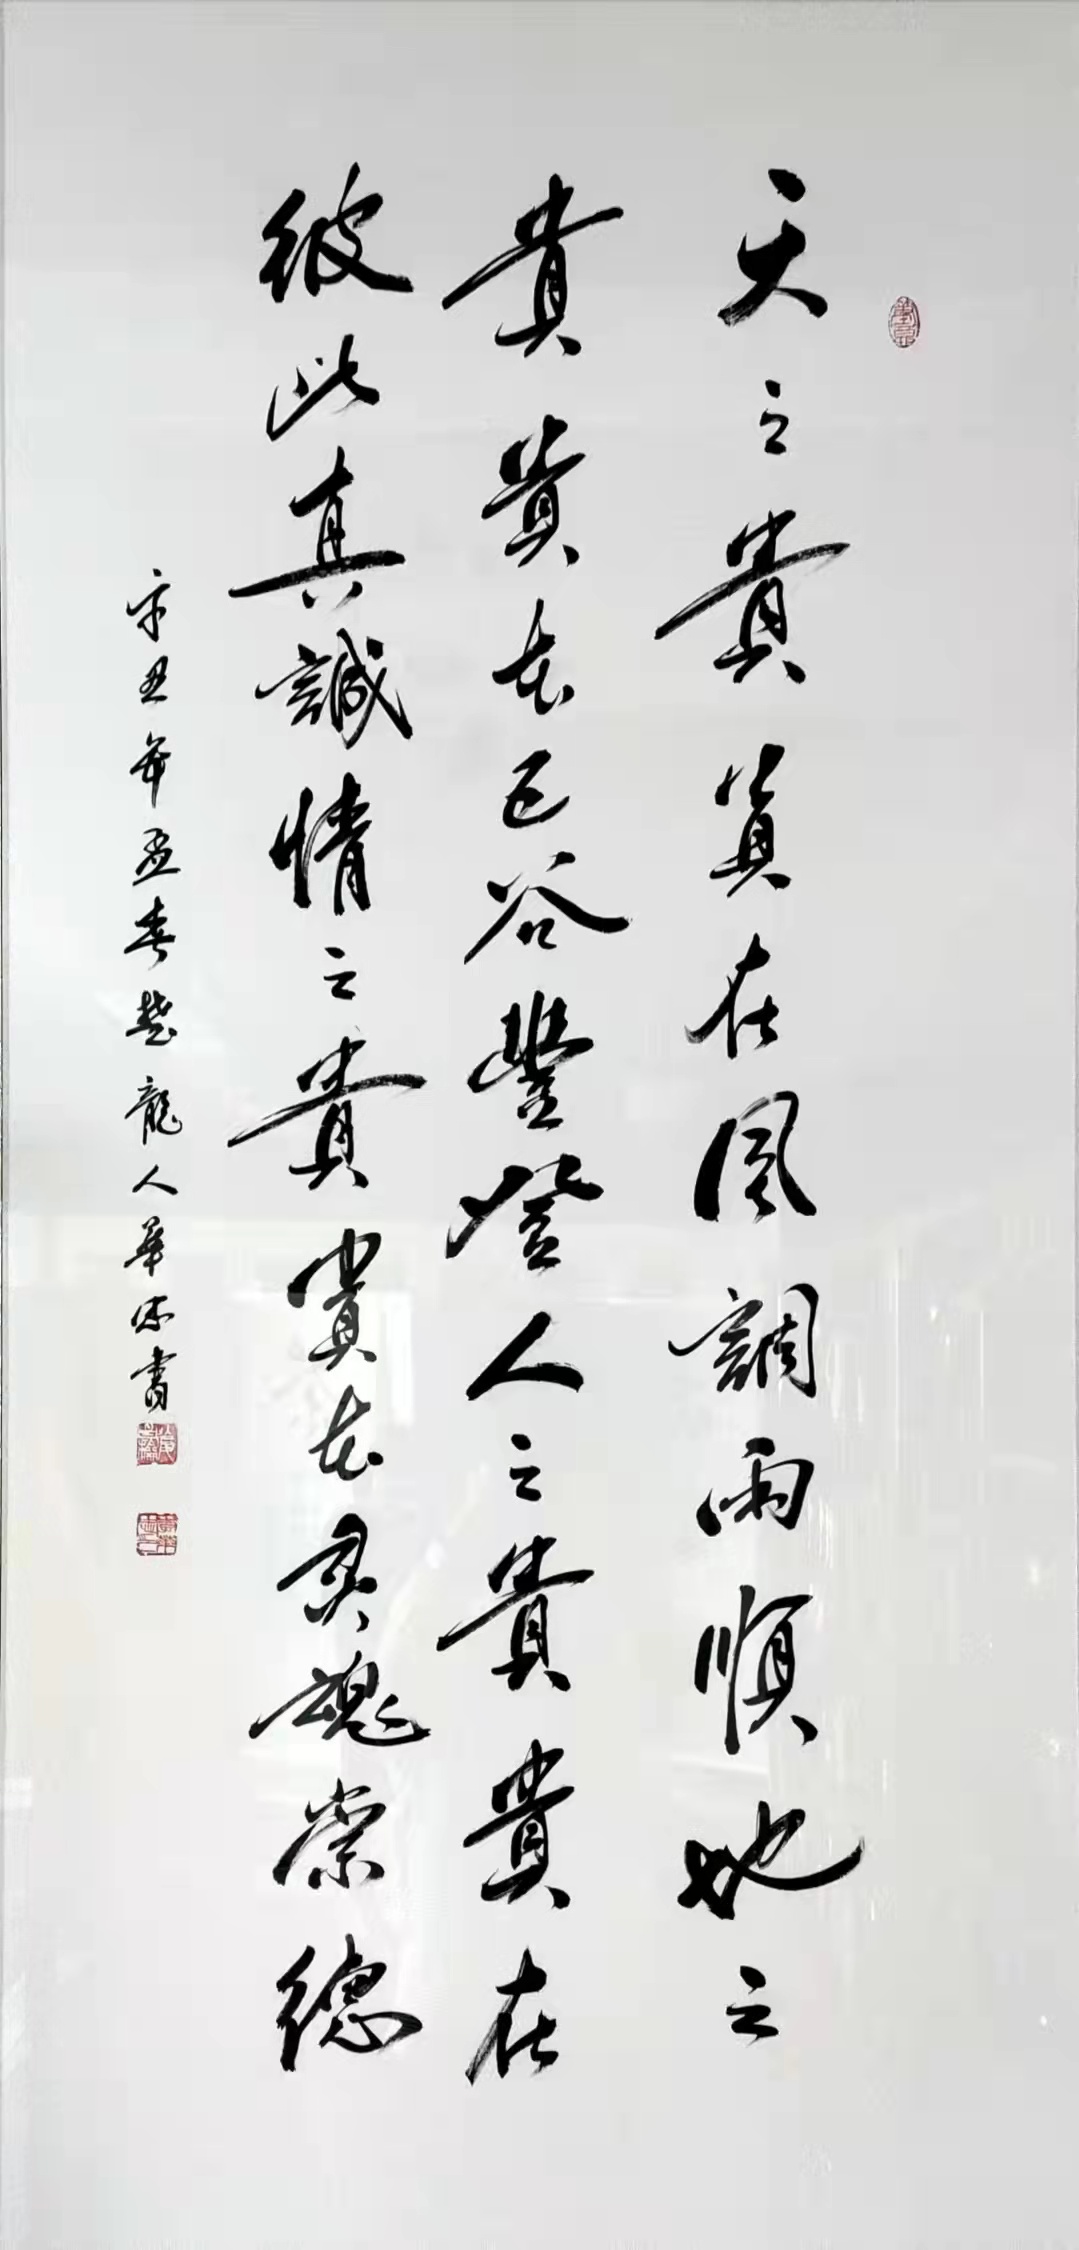 天之貴貴在風調雨順地之
貴貴在五谷豐登人之貴貴在
彼此真誠情之貴貴在灵魂崇德
辛丑年孟春楚龍人華忠書